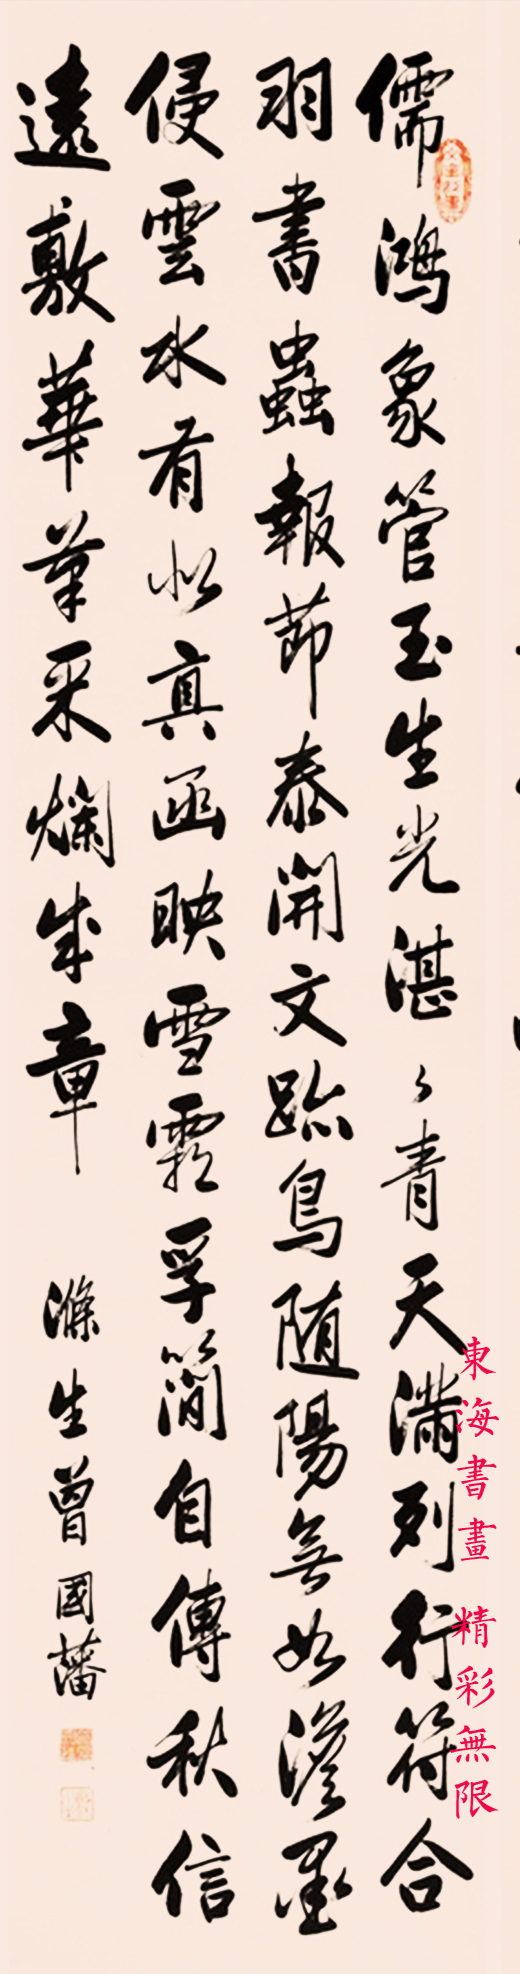 儒鴻象管玉生光湛〻青天滿列行符合
羽書蟲報節泰開文跡鳥隨陽無如澹墨
侵雲水有似真函映雪霜孚簡自傳秋信
遠敷華筆采爛成章
滌生曾國藩
東海書畫 精彩無限